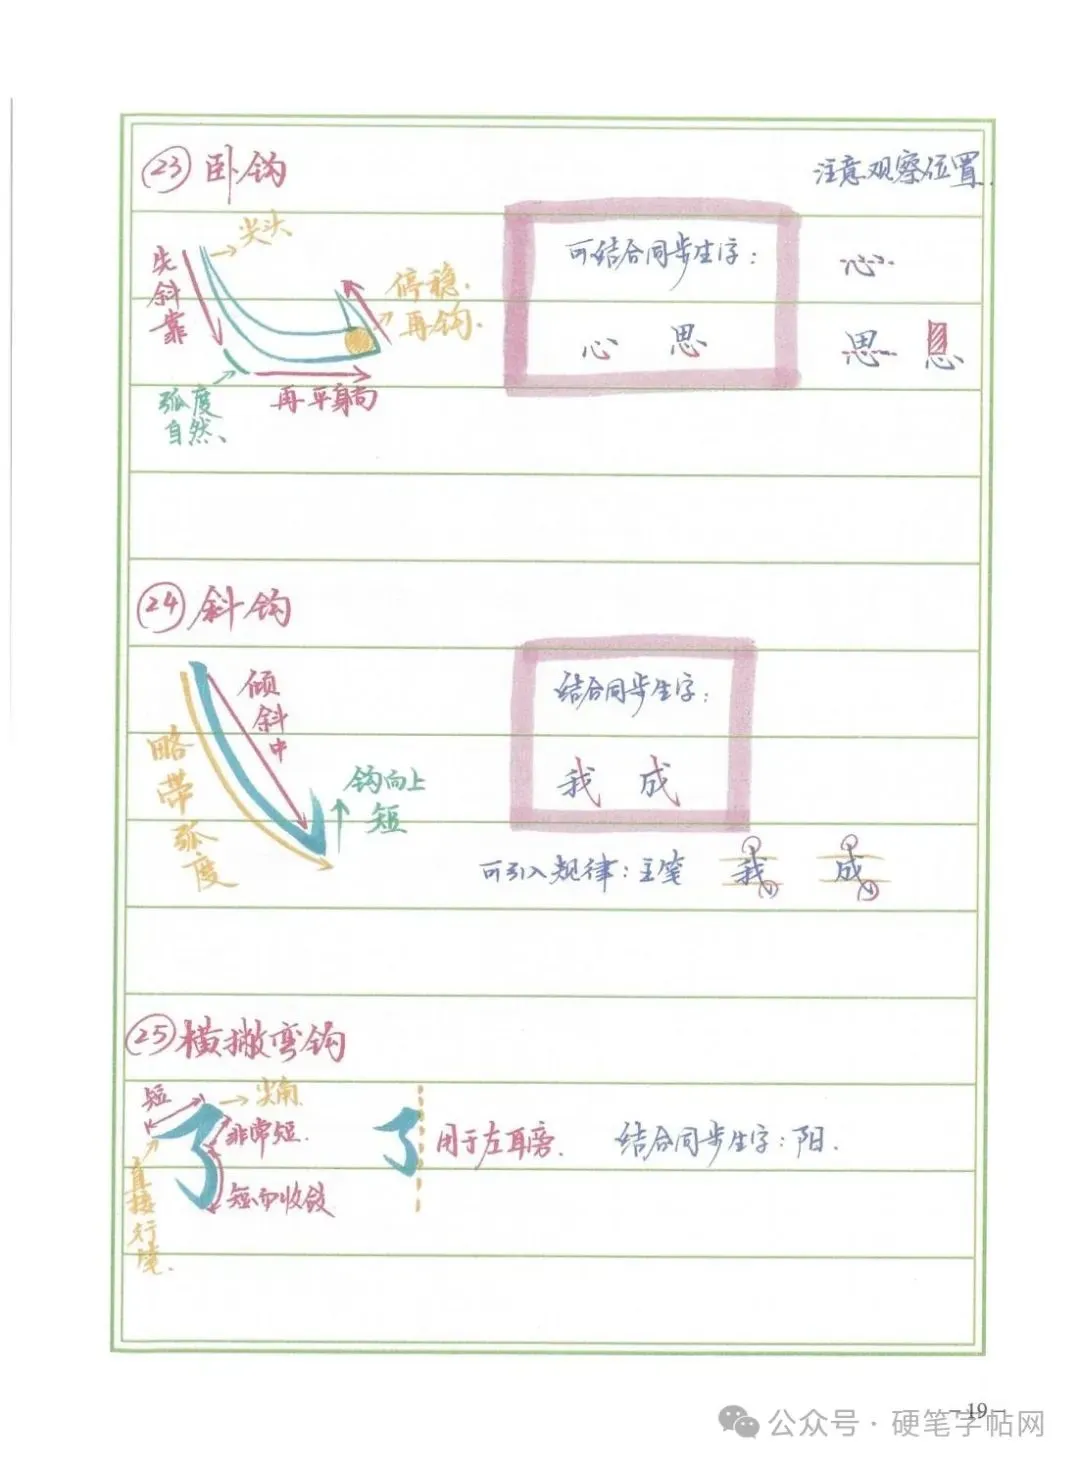 ㉓ 卧钩
注意观察位置.
尖头
先斜靠
停稳.
再钩.
弧度
自然、
再平身向
可结合同步生字：
心 思
心
思 息
㉔ 斜钩
倾斜中
略带弧度
钩向上
短
结合同步生字：
我 成
可引入规律：主笔 我 成
㉕ 横撇弯钩
短
尖角
非常短.
直接行笔.
短而收敛
用于左耳旁.
结合同步生字：阳.
-19-
公众号·硬笔字帖网